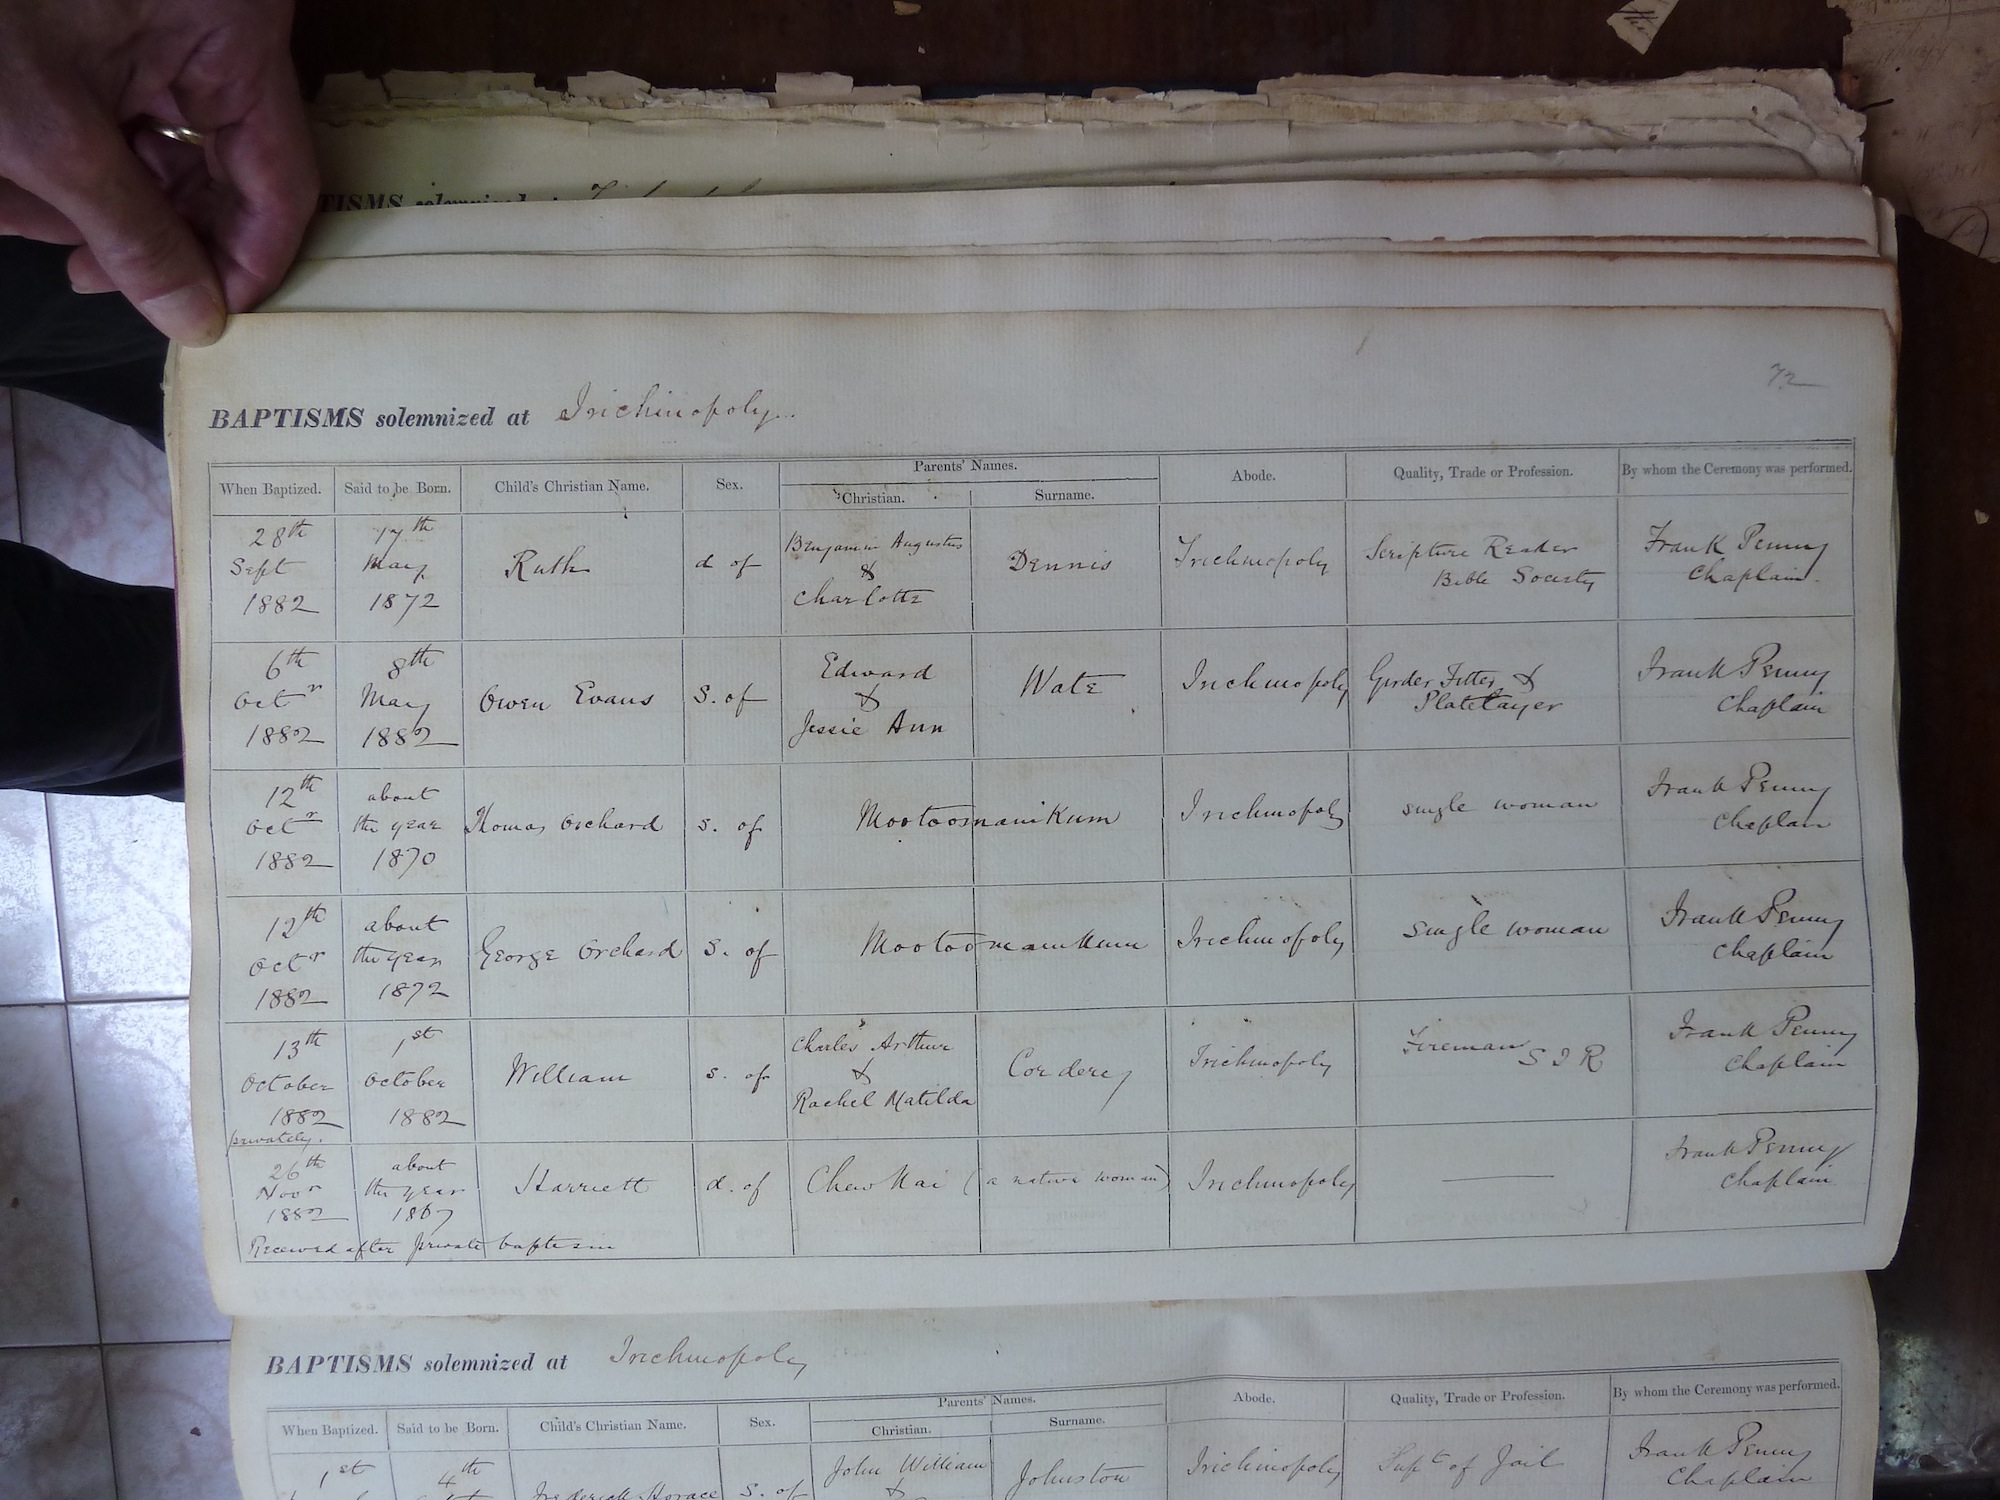 TISMS solemnized at
72
BAPTISMS solemnized at Trichinopoly.
When Baptized. Said to be Born. Child's Christian Name. Sex. Parents' Names. Christian. Surname. Abode. Quality, Trade or Profession. By whom the Ceremony was performed.
28th Sept 1882
17th May 1872
Ruth
d of
Benjamin Augustus & Charlotte
Dennis
Trichinopoly
Scripture Reader
Bible Society
Frank Penny
Chaplain.
6th Octr 1882
8th May 1882
Owen Evans
S. of
Edward & Jessie Ann
Wate
Trichinopoly
Girder Fitter &
Platelayer
Frank Penny
Chaplain
12th Octr 1882
about the year 1870
Thomas Orchard
s. of
Mootoomanikum
Trichinopoly
single woman
Frank Penny
Chaplain
12th Octr 1882
about the year 1872
George Orchard
S. of
Mootoomanikum
Trichinopoly
single woman
Frank Penny
Chaplain
13th October 1882
privately.
1st October 1882
William
s. of
Charles Arthur & Rachel Matilda
Corderey
Trichinopoly
Fireman S I R
Frank Penny
Chaplain
26th Novr 1882
about the year 1867
Harriett
d. of
(a native woman)
Trichinopoly
Frank Penny
Chaplain
Received after private baptism
BAPTISMS solemnized at Trichinopoly
When Baptized. Said to be Born. Child's Christian Name. Sex. Parents' Names. Christian. Surname. Abode. Quality, Trade or Profession. By whom the Ceremony was performed.
1st
4th
Frederick Horace
S. of
John William &
Johnston
Trichinopoly
Supt of Jail
Frank Penny
Chaplain